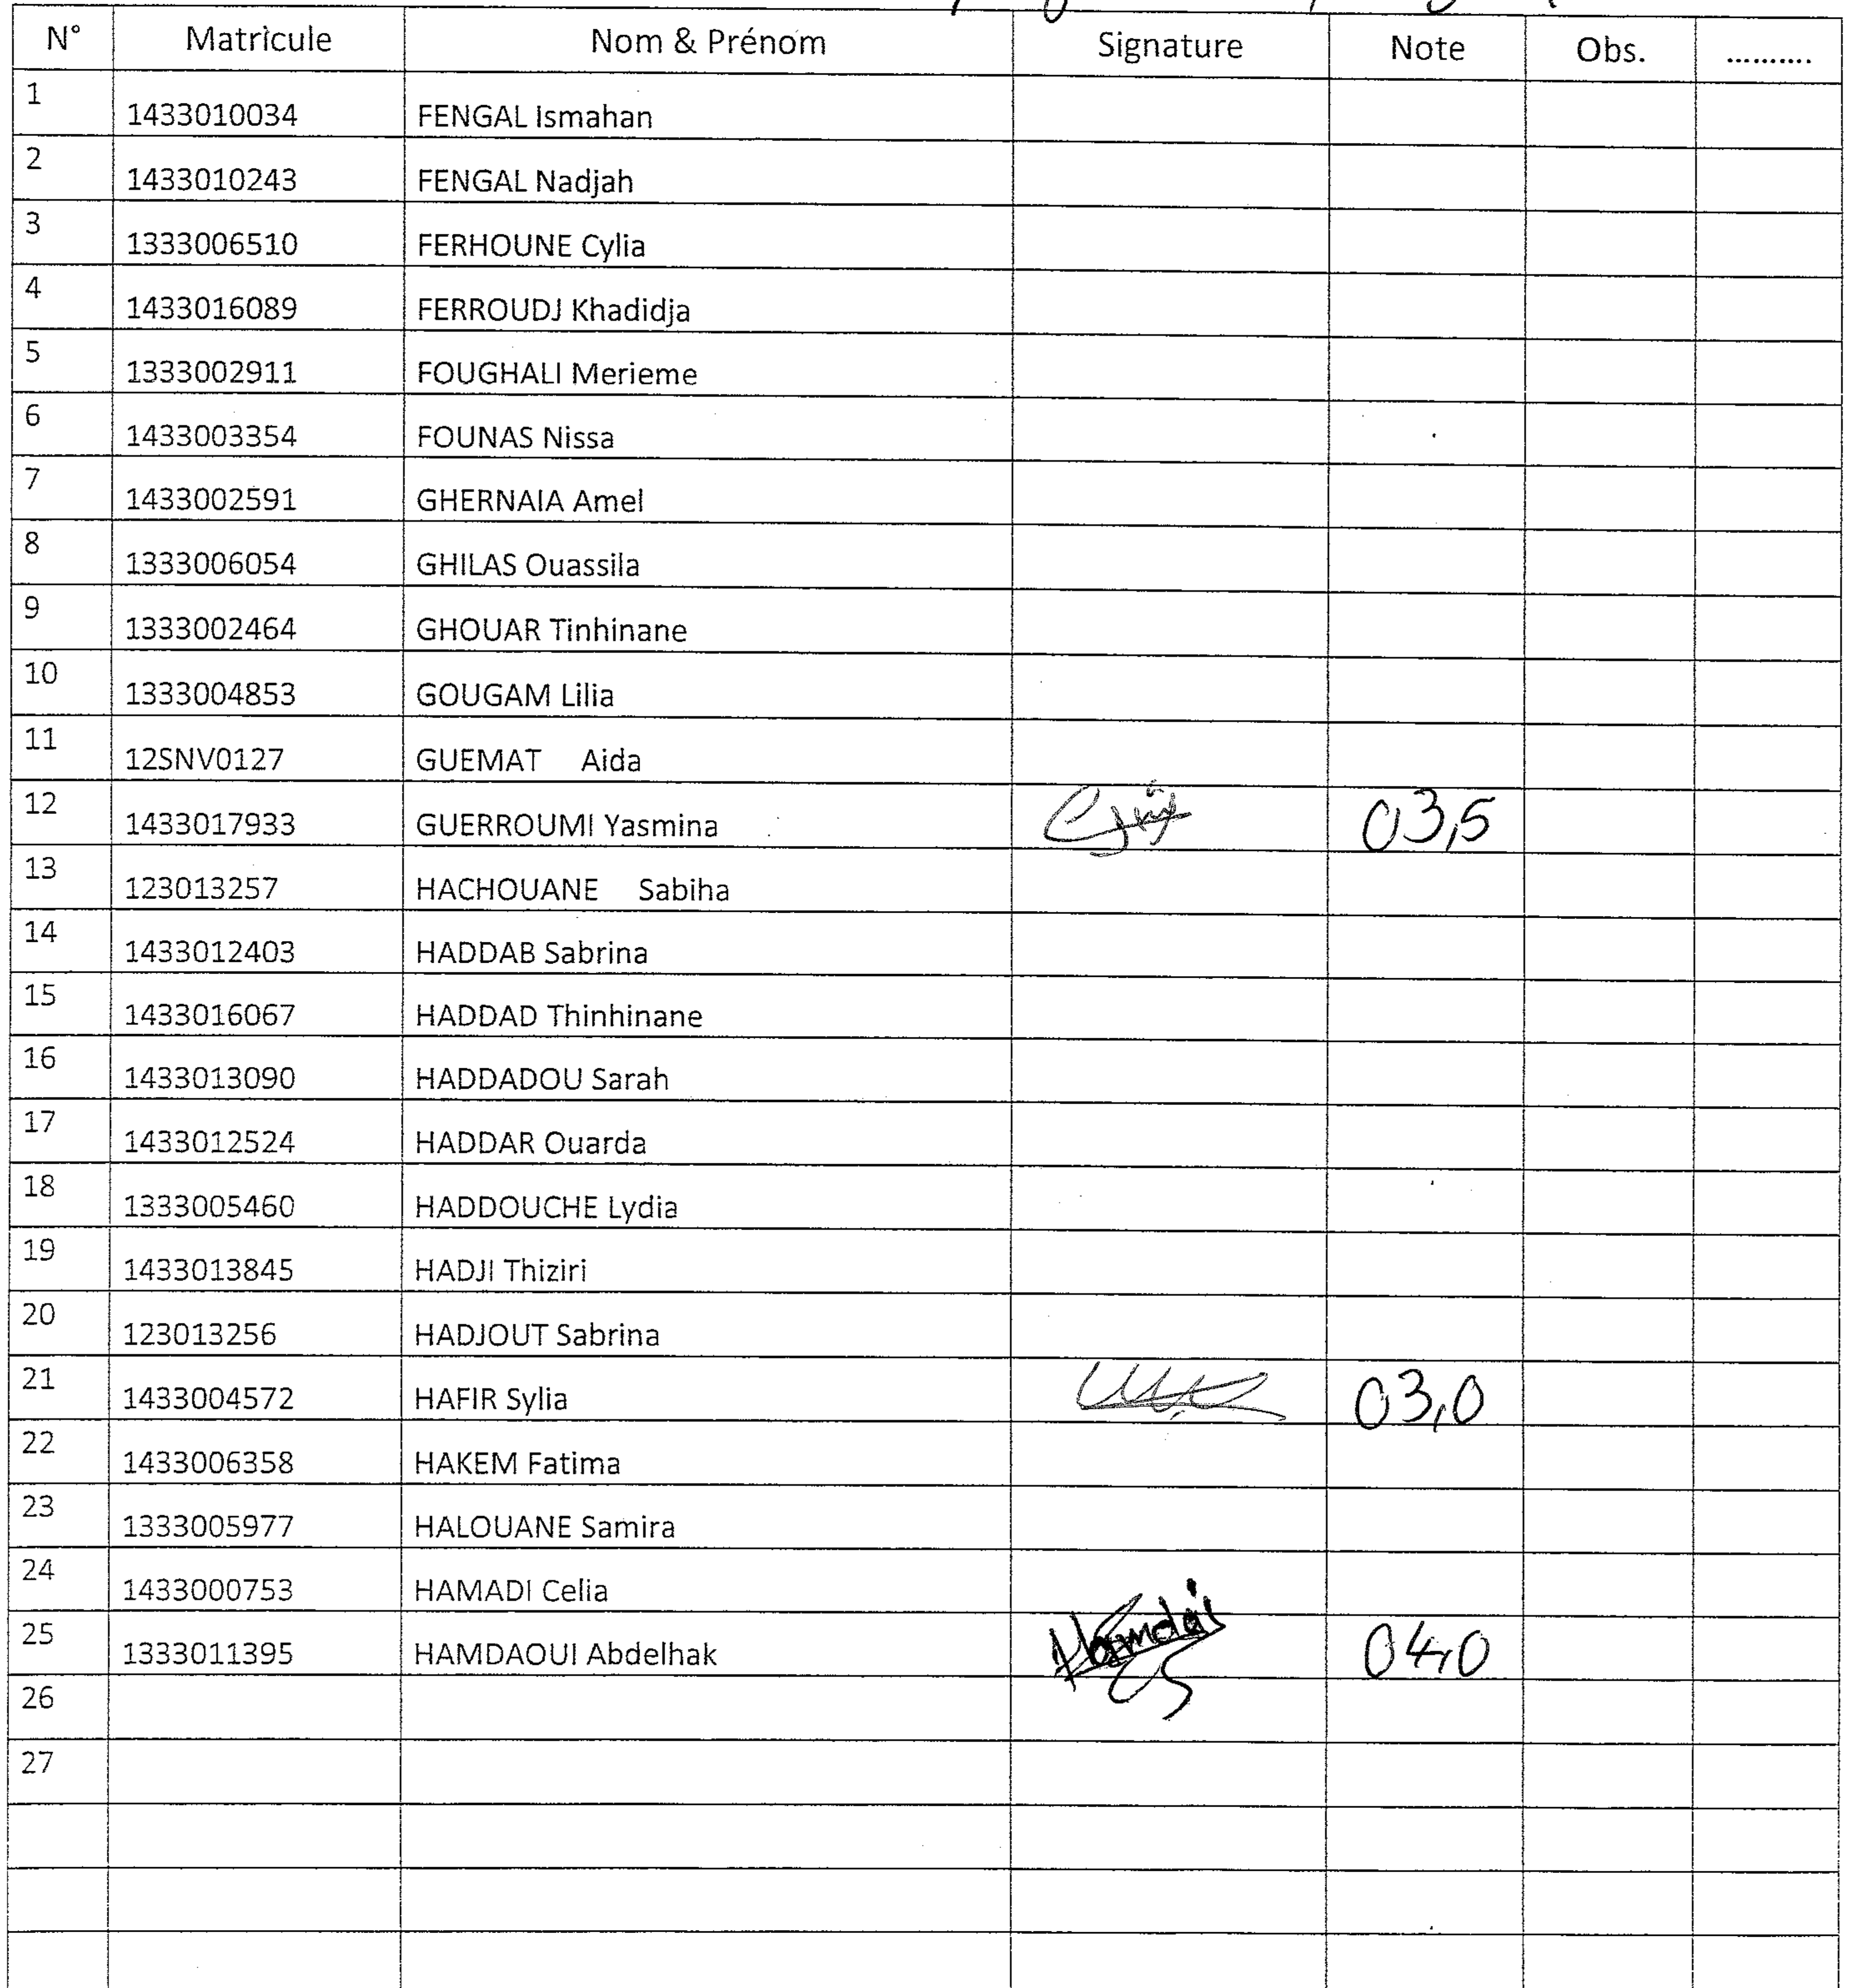 N° Matricule Nom & Prénom Signature Note Obs. ..........
1 1433010034 FENGAL Ismahan
2 1433010243 FENGAL Nadjah
3 1333006510 FERHOUNE Cylia
4 1433016089 FERROUDJ Khadidja
5 1333002911 FOUGHALI Merieme
6 1433003354 FOUNAS Nissa
7 1433002591 GHERNAIA Amel
8 1333006054 GHILAS Ouassila
9 1333002464 GHOUAR Tinhinane
10 1333004853 GOUGAM Lilia
11 12SNV0127 GUEMAT Aida
12 1433017933 GUERROUMI Yasmina 03,5
13 123013257 HACHOUANE Sabiha
14 1433012403 HADDAB Sabrina
15 1433016067 HADDAD Thinhinane
16 1433013090 HADDADOU Sarah
17 1433012524 HADDAR Ouarda
18 1333005460 HADDOUCHE Lydia
19 1433013845 HADJI Thiziri
20 123013256 HADJOUT Sabrina
21 1433004572 HAFIR Sylia 03,0
22 1433006358 HAKEM Fatima
23 1333005977 HALOUANE Samira
24 1433000753 HAMADI Celia
25 1333011395 HAMDAOUI Abdelhak 04,0
26
27